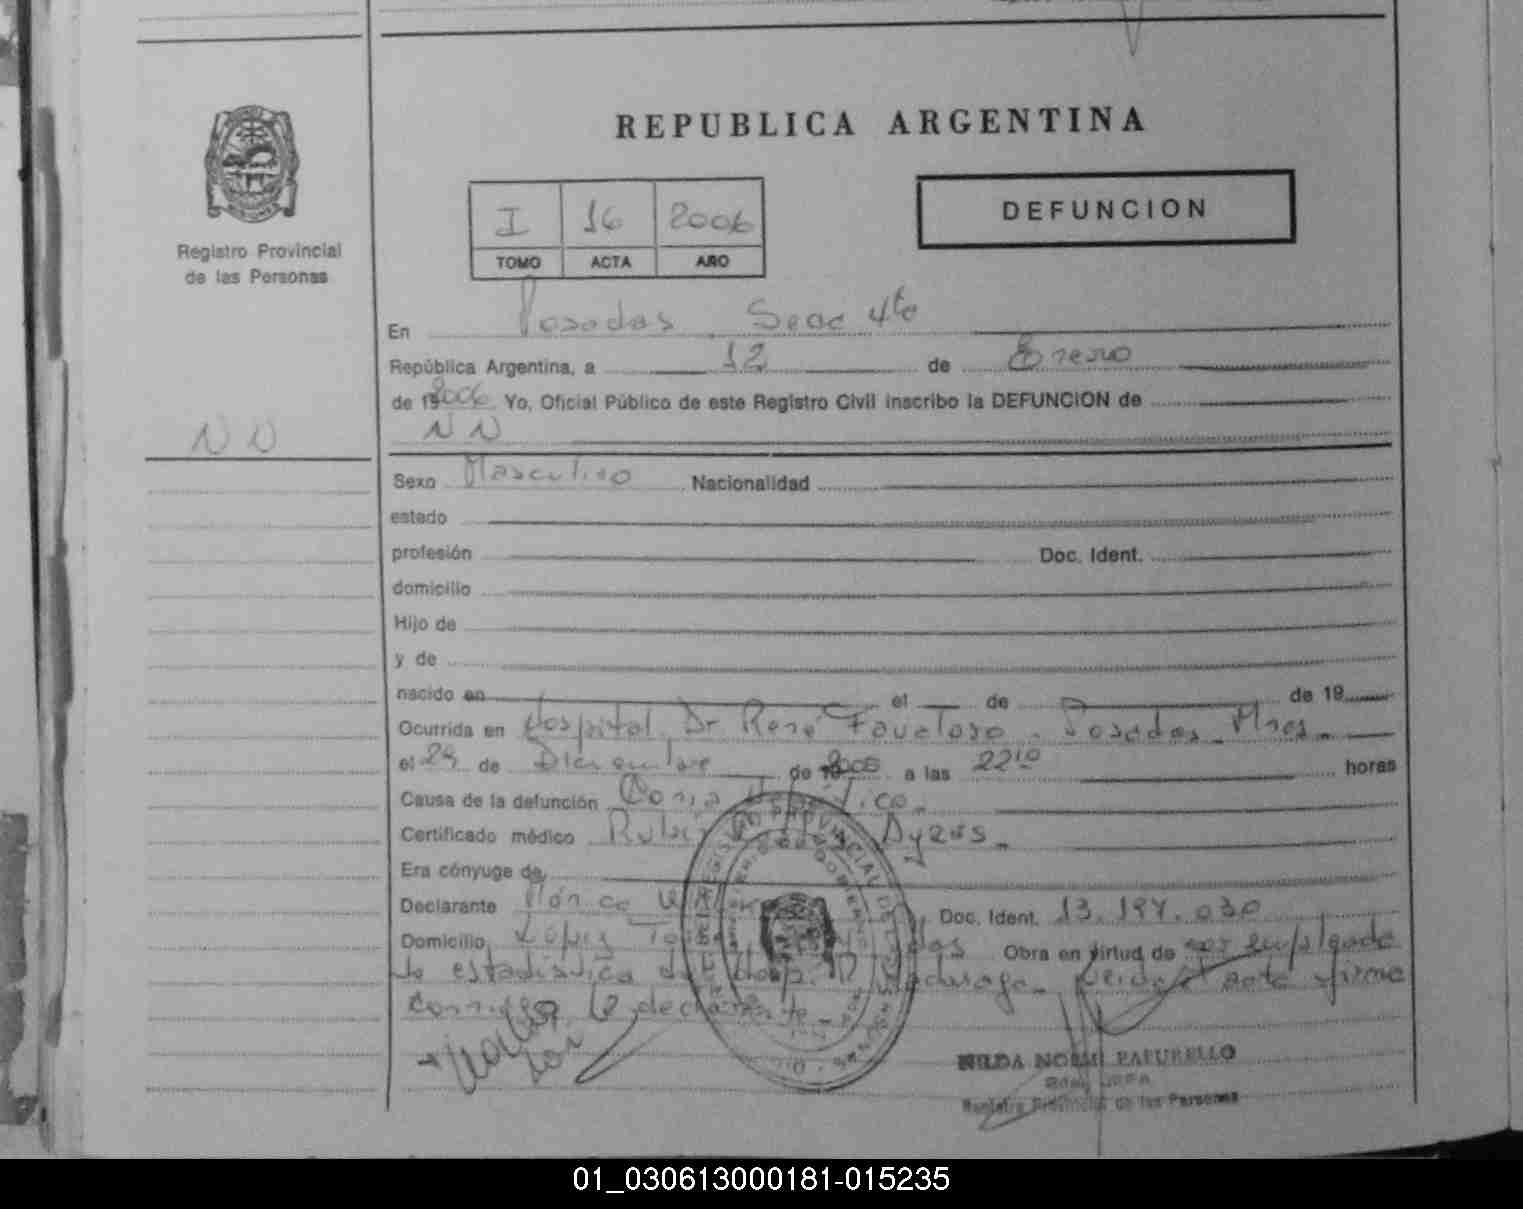 REPUBLICA ARGENTINA
Registro Provincial
de las Personas
I 16 2006
TOMO ACTA AÑO
DEFUNCION
En Posadas Secc 4ta
República Argentina, a 12 de Enero
de 19 2006 Yo, Oficial Público de este Registro Civil inscribo la DEFUNCION de
N N
N N
Sexo Masculino Nacionalidad
estado
profesión Doc. Ident.
domicilio
Hijo de
y de
nacido en el de de 19
Ocurrida en Hospital Dr René Favaloro - Posadas - Mnes.
el 29 de Diciembre de 19 2005 a las 22 10 horas
Causa de la defunción
Certificado médico Rubén
Era cónyuge de
Declarante Mónica Doc. Ident. 13.197.030
Domicilio López Obra en virtud de ser empleado
de estadística del Hosp. Dr Madariaga. Leida el acta firma
conmigo la declarante -
HILDA NOEMI
Registro Provincial de las Personas
01_030613000181-015235